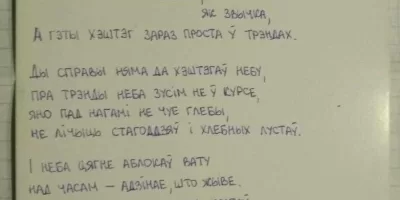 як звычка,
А гэты хэштэг зараз проста ў трэндах.
Ды справы няма да хэштэгаў небу,
пра трэнды неба зусім не ў курсе,
яно пад нагамі не чуе глебы,
не лічыць стагоддзяў і хлебных лустаў.
І неба цягне аблокаў вату
над часам – адзінае, што жыве.